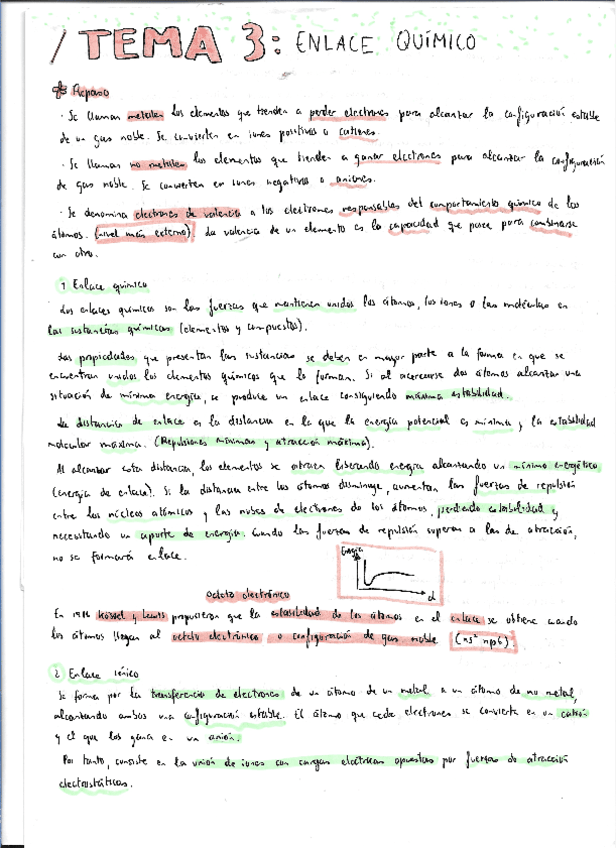 / TEMA 3: ENLACE QUÍMICO
* Repaso
· Se llaman metales los elementos que tienden a perder electrones para alcanzar la configuración estable
de un gas noble. Se convierten en iones positivos o cationes.
· Se llaman no metales los elementos que tienden a ganar electrones para alcanzar la configuración
de gas noble. Se convierten en iones negativos o aniones.
· Se denomina electrones de valencia a los electrones responsables del comportamiento químico de los
átomos. (nivel más externo). La valencia de un elemento es la capacidad que posee para combinarse
con otro.
1 Enlace químico
Los enlaces químicos son las fuerzas que mantienen unidos los átomos, los iones o las moléculas en
las sustancias químicas (elementos y compuestos).
Las propiedades que presentan las sustancias se deben en mayor parte a la forma en que se
encuentran unidos los elementos químicos que la forman. Si al acercarse dos átomos alcanzan una
situación de mínima energía, se produce un enlace consiguiendo máxima estabilidad.
La distancia de enlace es la distancia en la que la energía potencial es mínima y la estabilidad
molecular máxima. (Repulsiones mínimas y atracción máxima).
Al alcanzar esta distancia, los elementos se atraen liberando energía alcanzando un mínimo energético
(energía de enlace). Si la distancia entre los átomos disminuye, aumentan las fuerzas de repulsión
entre los núcleos atómicos y las nubes de electrones de los átomos, perdiendo estabilidad y
necesitando un aporte de energía. Cuando las fuerzas de repulsión superan a las de atracción,
no se formará enlace.
Energía
d
Octeto electrónico
En 1916 Kössel y Lewis propusieron que la estabilidad de los átomos en el enlace se obtiene cuando
los átomos llegan al octeto electrónico o configuración de gas noble (ns² np6).
2 Enlace iónico
Se forma por la transferencia de electrones de un átomo de un metal a un átomo de no metal,
alcanzando ambos una configuración estable. El átomo que cede electrones se convierte en un catión
y el que los gana en un anión.
Por tanto, consiste en la unión de iones con cargas eléctricas opuestas por fuerzas de atracción
electrostáticas.